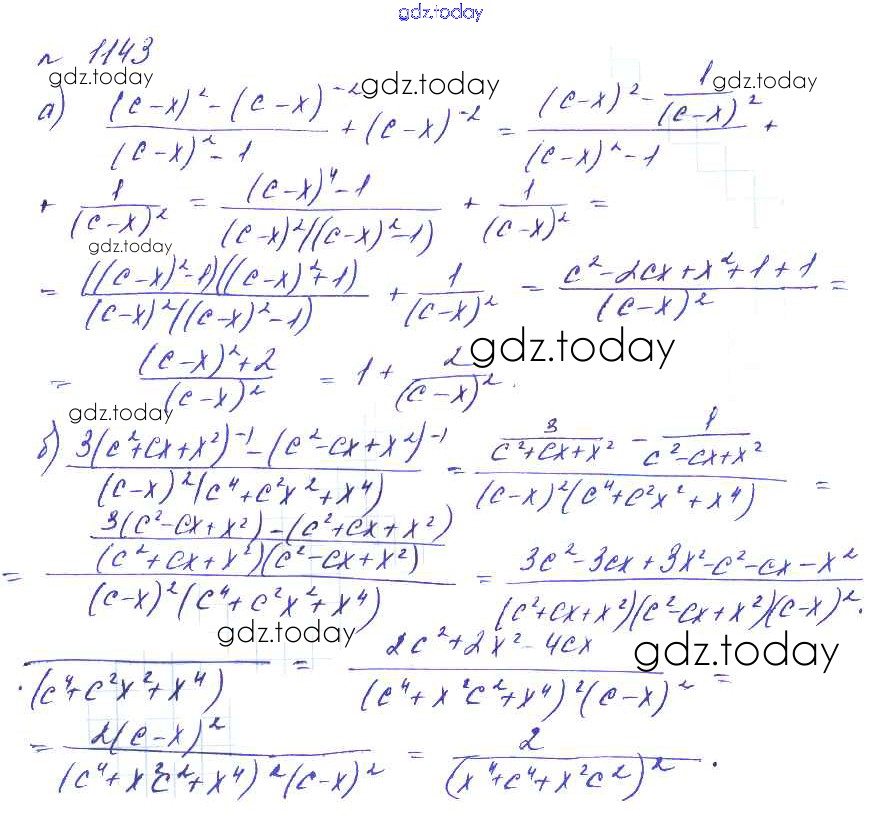 gdz.today
n 1143
gdz.today gdz.today gdz.today
а) ((c-x)² - (c-x)⁻²)/((c-x)² - 1) + (c-x)⁻² = ((c-x)² - 1/(c-x)²)/((c-x)² - 1) +
+ 1/(c-x)² = ((c-x)⁴ - 1)/((c-x)²((c-x)² - 1)) + 1/(c-x)² =
gdz.today
= (((c-x)² - 1)((c-x)² + 1))/((c-x)²((c-x)² - 1)) + 1/(c-x)² = (c² - 2cx + x² + 1 + 1)/(c-x)² =
gdz.today
= ((c-x)² + 2)/(c-x)² = 1 + 2/(c-x)².
gdz.today
б) (3(c² + cx + x²)⁻¹ - (c² - cx + x²)⁻¹)/((c-x)²(c⁴ + c²x² + x⁴)) = (3/(c² + cx + x²) - 1/(c² - cx + x²))/((c-x)²(c⁴ + c²x² + x⁴)) =
= ((3(c² - cx + x²) - (c² + cx + x²))/((c² + cx + x²)(c² - cx + x²)))/((c-x)²(c⁴ + c²x² + x⁴)) = (3c² - 3cx + 3x² - c² - cx - x²)/((c² + cx + x²)(c² - cx + x²)(c-x)²·
gdz.today gdz.today
·(c⁴ + c²x² + x⁴)) = (2c² + 2x² - 4cx)/((c⁴ + x²c² + x⁴)²(c-x)²) =
= (2(c-x)²)/((c⁴ + x²c² + x⁴)²(c-x)²) = 2/(x⁴ + c⁴ + x²c²)².